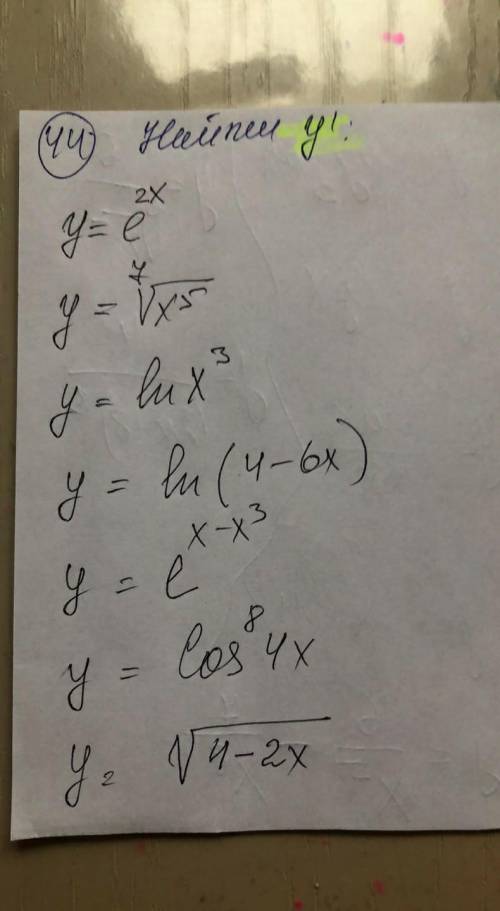 44 Найти y':
y = e^{2x}
y = \sqrt[7]{x^5}
y = ln x^3
y = ln(4-6x)
y = e^{x-x^3}
y = cos^8 4x
y = \sqrt{4-2x}